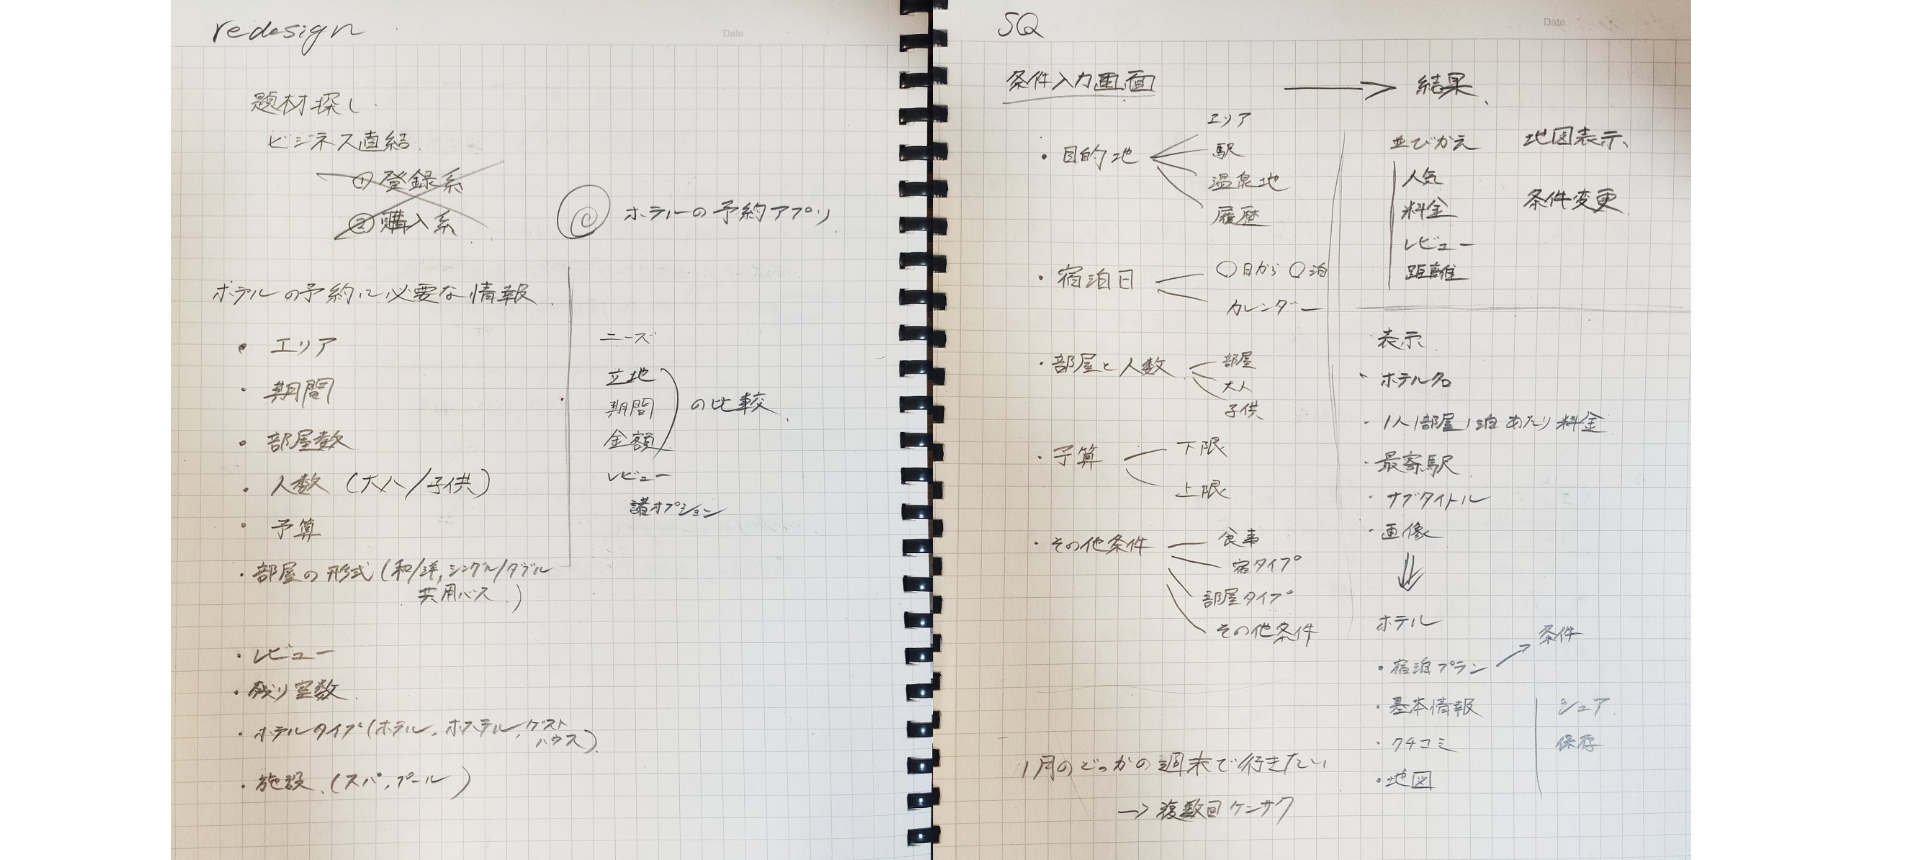 redesign
Date
題材探し
ビジネス直結
① 登録系
② 購入系
ホテルの予約アプリ
ホテルの予約に必要な情報
・エリア
・期間
・部屋数
・人数 (大人/子供)
・予算
・部屋の形式 (和/洋,シングル/ダブル
共用バス)
・レビュー
・残り室数
・ホテルのタイプ(ホテル,ホステル,ゲスト
ハウス)
・施設、(スパ,プール)
ニーズ
立地
期間
金額
の比較
レビュー
諸オプション
SQ
Date
条件入力画面
・目的地
エリア
駅
温泉地
履歴
・宿泊日
〇日から〇泊
カレンダー
・部屋と人数
部屋
大人
子供
・予算
下限
上限
・その他条件
食事
宿タイプ
部屋タイプ
その他条件
1月のどっかの週末で行きたい
→ 複数回ケンサク
→ 結果、
並びかえ
人気
料金
レビュー
距離
地図表示、
条件変更
表示
・ホテル名
・1人1部屋1泊あたり料金
・最寄駅
・サブタイトル
・画像
ホテル
・宿泊プラン → 条件
・基本情報
・クチコミ
・地図
シェア
保存